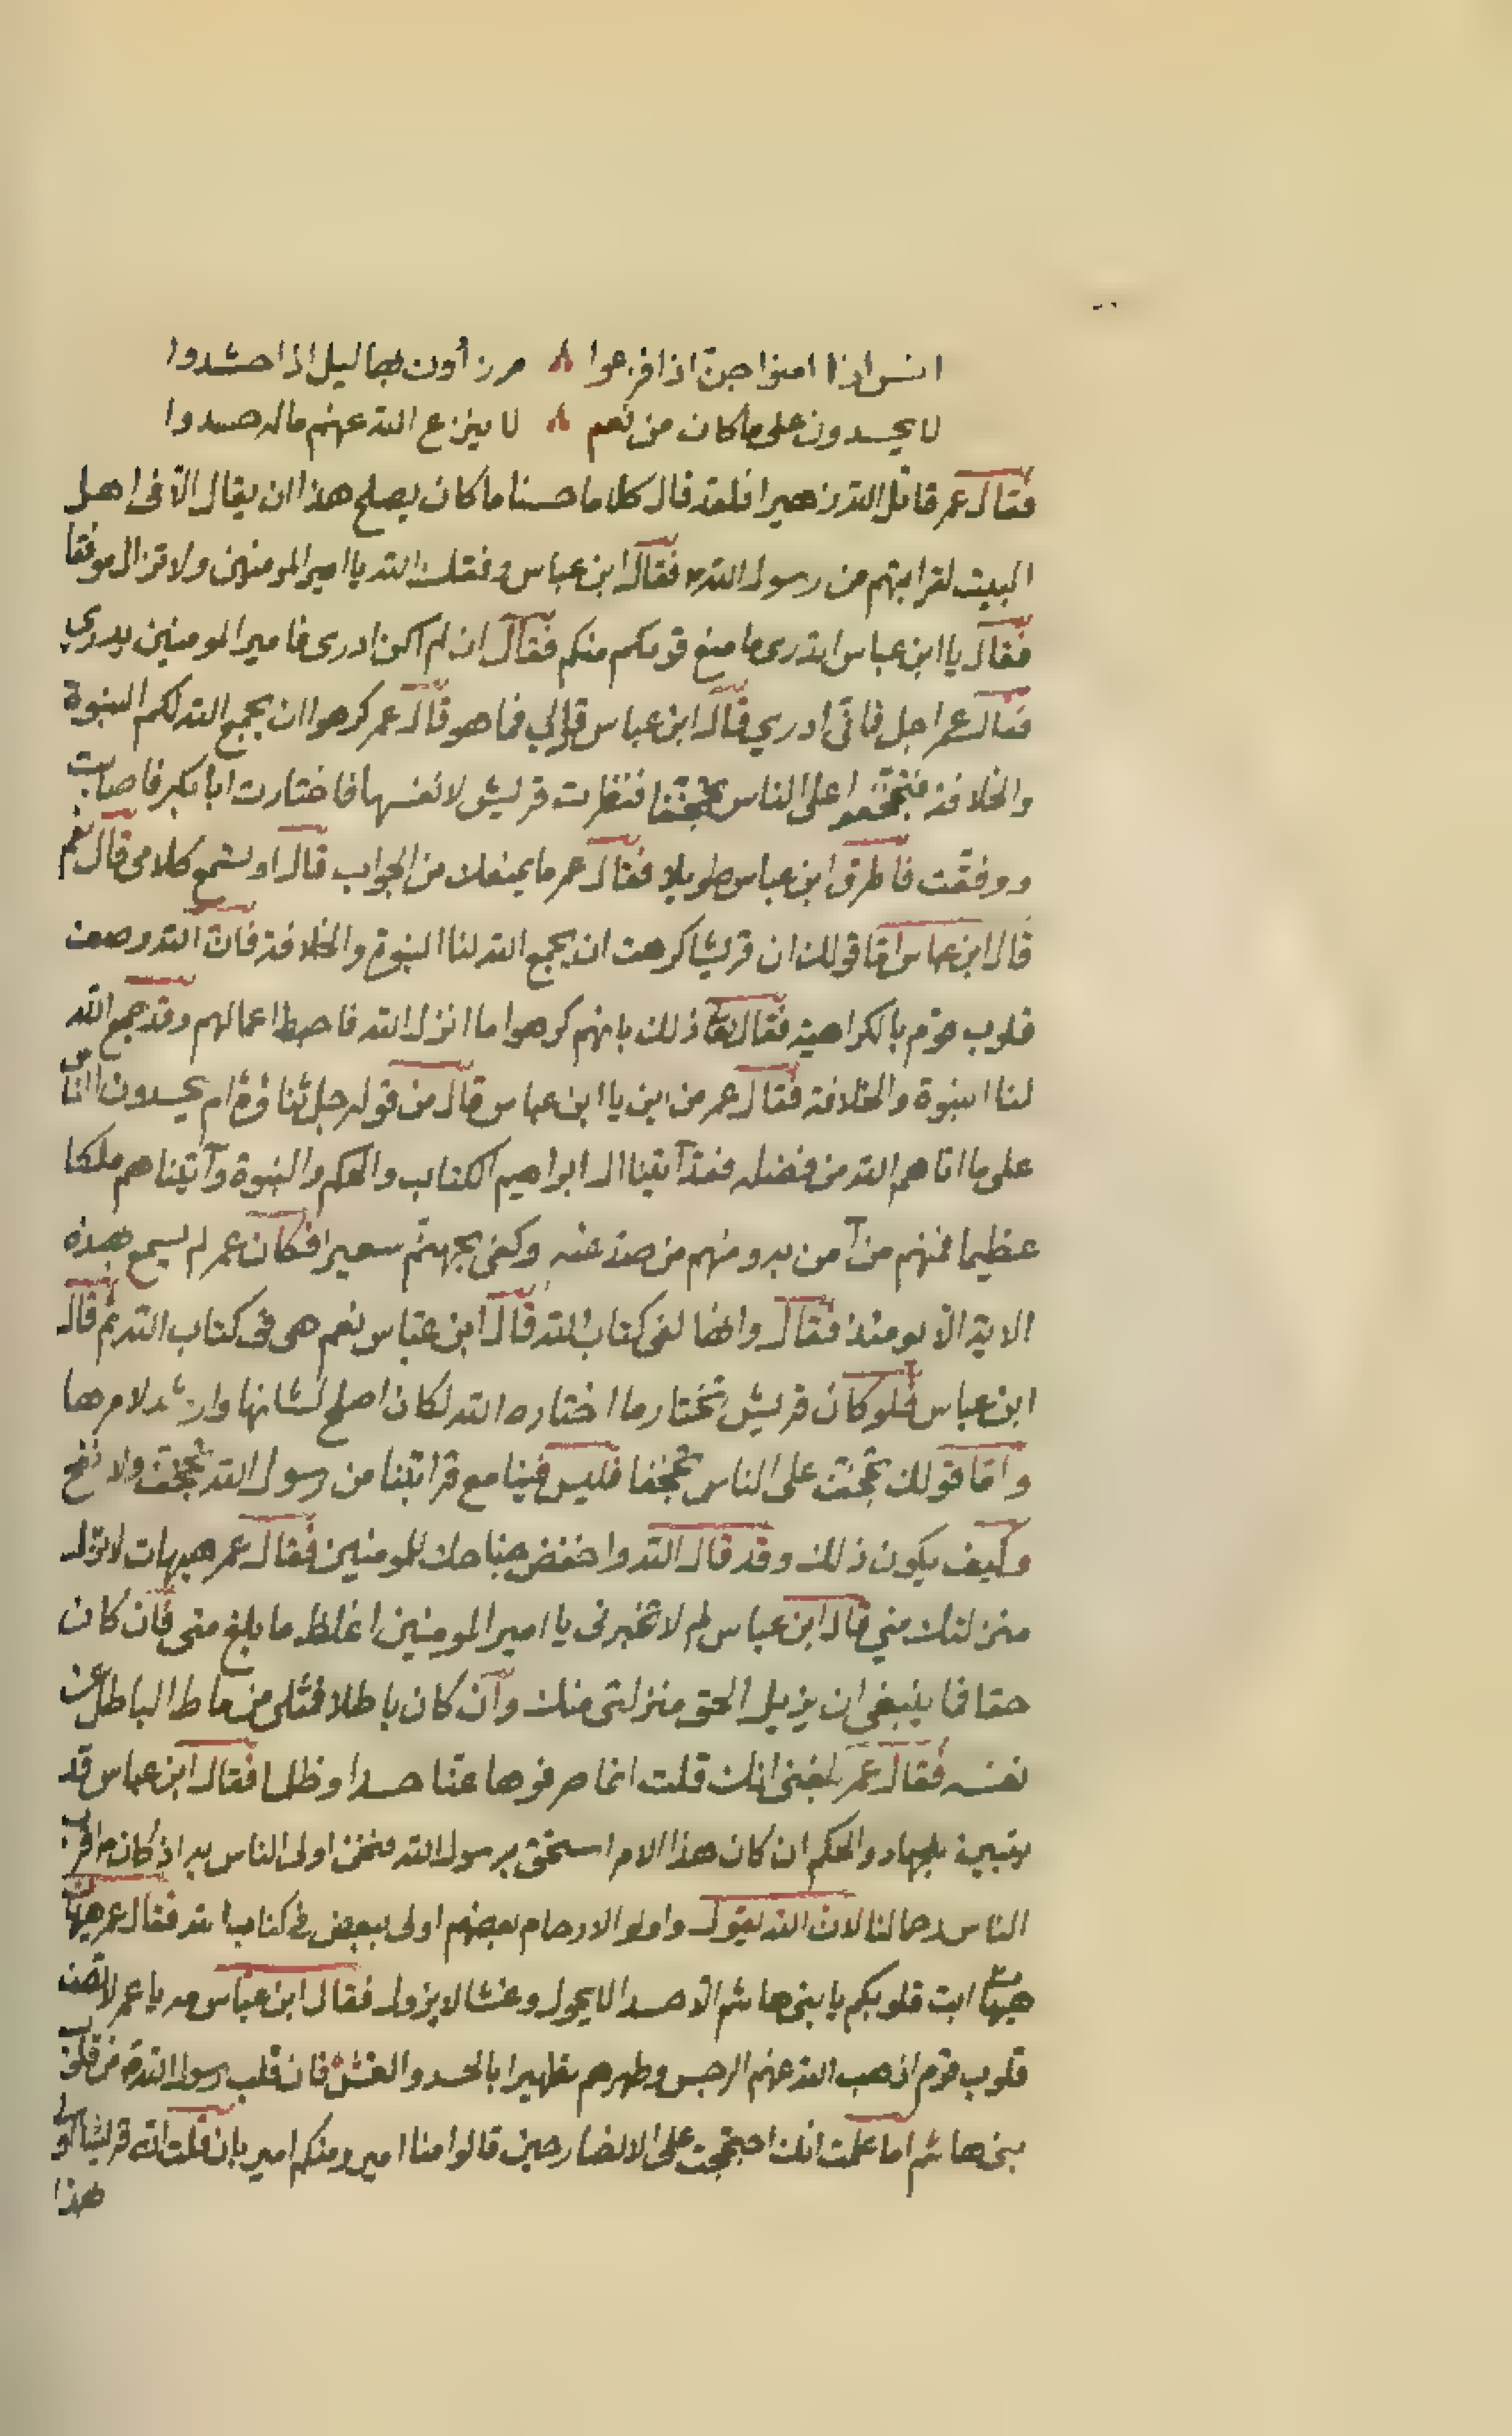 انس اذا امنوا جن اذا فزعوا ٨ مرزأون بهاليل اذا حشدوا
لا يحسدون على ما كان من نعم ٨ لا ينزع الله عنهم ماله حسدوا
فقال عمر قاتل الله زهيرا فلقد قال كلاما حسنا ما كان يصلح هذا ان يقال الا في اهل
البيت لقرابتهم من رسول الله فقال ابن عباس وفقك الله يا امير المومنين ولا تزال موفقا
فقال يا ابن عباس اتدري ما منع قومكم منكم فقال ان لم اكن ادرى فامير المومنين يدري
فقال عمر اجل فاني ادري قال ابن عباس قل لي فما هو قال عمر كرهوا ان يجمع الله لكم النبوة
والخلافة على الناس فنظرت قريش لانفسها فاختارت ابا بكر فاصابت
ووفقت فاطرق ابن عباس طويلا فقال عمر ما يمنعك من الجواب قال او تسمع كلامي قال نعم
قال ابن عباس اما قولك ان قريشا كرهت ان يجمع الله لنا النبوة والخلافة فان الله وصف
قلوب قوم بالكراهية فقال ذلك بانهم كرهوا ما انزل الله فاحبط اعمالهم وقد جمع الله
لنا النبوة والخلافة فقال عمر من اين يا ابن عباس قال من قوله جل ثناؤه ام يحسدون الناس
على ما اتاهم الله من فضله فقد آتينا ال ابراهيم الكتاب والحكم والنبوة وآتيناهم ملكا
عظيما فمنهم من آمن به ومنهم من صد عنه وكفى بجهنم سعيرا فكان عمر لم يسمع بهذه
الاية الا يومئذ فقال وانها لفى كتاب الله قال ابن عباس نعم هى فى كتاب الله ثم قال
ابن عباس فلو كان قريش تختار ما اختاره الله لكان اصلح لشانها وارشد لامرها
واما قولك على الناس فليس فينا مع قرابتنا من رسول الله ولا
وكيف يكون ذلك وقد قال الله واخفض جناحك للمومنين فقال عمر هيهات لا تزل
منزلتك مني قال ابن عباس لم لا تخبرنى يا امير المومنين اغلظ ما بلغ منى فان كان
حقا فما ينبغى ان يزيل الحق منزلتى منك وان كان باطلا فمثلى من ماط الباطل عن
نفسه فقال عمر بلغنى انك قلت انما صرفوها عنا حسدا وظلما فقال ابن عباس قد
والحكم ان كان هذا الامر استحق برسول الله فنحن اولى الناس به اذ كان اقرب
الناس رحما لنا لان الله يقول واولو الارحام بعضهم اولى ببعض في كتاب الله فقال عمر هيهات
هيهات ابت قلوبكم يا بنى هاشم الا حسدا لا يحول وغشا لا يزول فقال ابن عباس مه يا عمر لا تصف
قلوب قوم اذهب الله عنهم الرجس وطهرهم تطهيرا بالحسد والغش فان قلب رسول الله من قلوب
بنى هاشم اما علمت انك احتججت على الانصار حين قالوا منا امير ومنكم امير بان قلت ان قريشا اولى
هذا